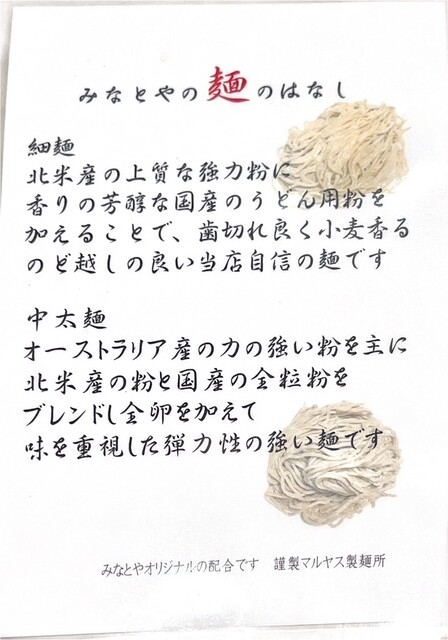 みなとやの麺のはなし
細麺
北米産の上質な強力粉に
香りの芳醇な国産のうどん用粉を
加えることで、歯切れ良く小麦香る
のど越しの良い当店自信の麺です
中太麺
オーストラリア産の力の強い粉を主に
北米産の粉と国産の全粒粉を
ブレンドし全卵を加えて
味を重視した弾力性の強い麺です
みなとやオリジナルの配合です 謹製マルヤス製麺所